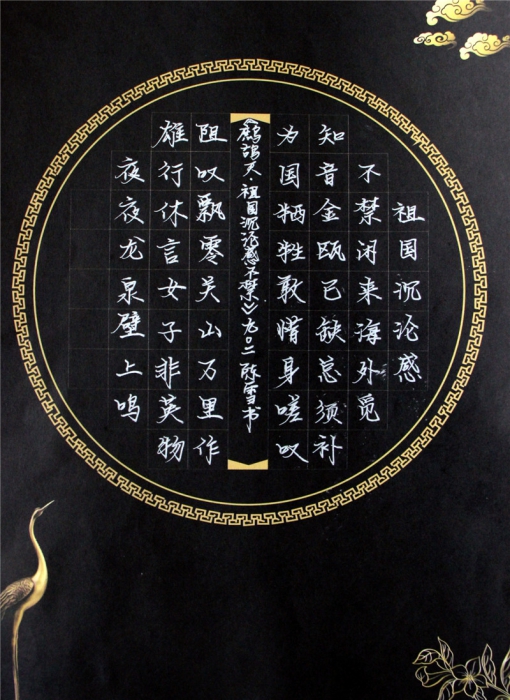 祖国沉沦感
不禁闲来海外觅
知音金瓯已缺总须补
为国牺牲敢惜身嗟叹
《鹧鸪天 祖国沉沦感不禁》九〇二 陈雪书
阻叹飘零关山万里作
雄行休言女子非英物
夜夜龙泉壁上鸣